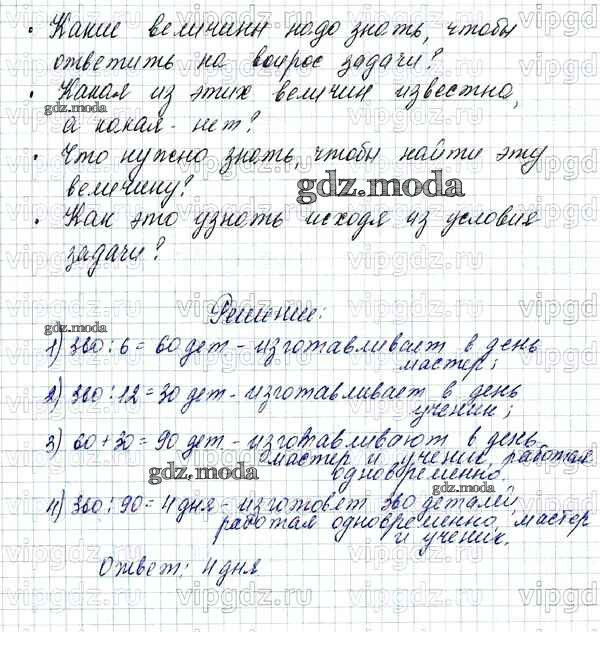 • Какие величины надо знать, чтобы
ответить на вопрос задачи?
• Какая из этих величин известна,
а какая - нет?
• Что нужно знать, чтобы найти эту
величину?
• Как это узнать исходя из условия
задачи?
Решение:
1) 360 : 6 = 60 дет - изготавливает в день
мастер;
2) 360 : 12 = 30 дет - изготавливает в день
ученик;
3) 60 + 30 = 90 дет - изготавливают в день
мастер и ученик, работая
одновременно
4) 360 : 90 = 4 дня - изготовет 360 деталей,
работая одновременно, мастер
и ученик.
Ответ: 4 дня
gdz.moda
gdz.moda
gdz.moda
gdz.moda
gdz.moda
vipgdz.ru